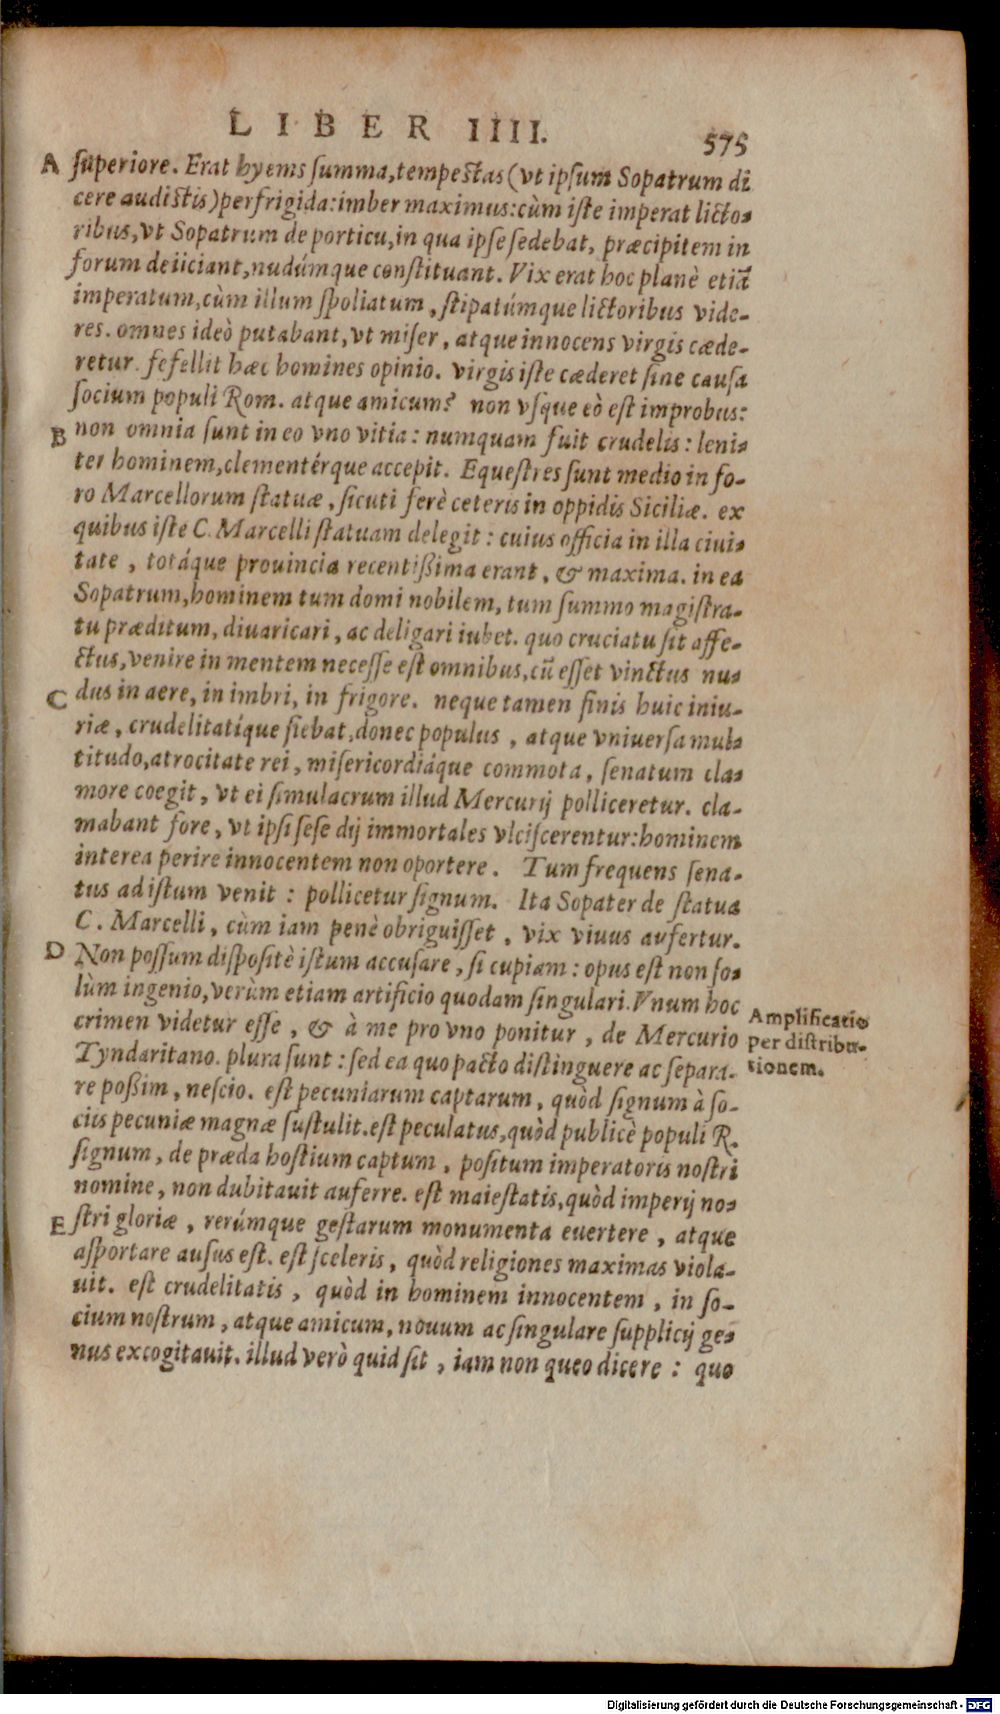 LIBER IIII.
575
A superiore. Erat hyems summa, tempestas (vt ipsum Sopatrum di
cere audistis) perfrigida: imber maximus: cùm iste imperat licto-
ribus, vt Sopatrum de porticu, in qua ipse sedebat, præcipitem in
forum deiiciant, nudúmque constituant. Vix erat hoc planè etiā
imperatum, cùm illum spoliatum, stipatúmque lictoribus vide-
res. omnes ideò putabant, vt miser, atque innocens virgis cæde-
retur. fefellit hæc homines opinio. virgis iste cæderet sine causa
socium populi Rom. atque amicum? non vsque eò est improbus:
B non omnia sunt in eo vno vitia: numquam fuit crudelis: leni-
ter hominem, clementérque accepit. Equestres sunt medio in fo-
ro Marcellorum statuæ, sicuti ferè ceteris in oppidis Siciliæ. ex
quibus iste C. Marcelli statuam delegit: cuius officia in illa ciui-
tate, totáque prouincia recentißima erant, & maxima. in ea
Sopatrum, hominem tum domi nobilem, tum summo magistra-
tu præditum, diuaricari, ac deligari iubet. quo cruciatu sit affe-
ctus, venire in mentem necesse est omnibus, cū esset vinctus nu-
C dus in aere, in imbri, in frigore. neque tamen finis huic iniu-
riæ, crudelitatíque fiebat, donec populus, atque vniuersa mul-
titudo, atrocitate rei, misericordiáque commota, senatum cla-
more coegit, vt ei simulacrum illud Mercurij polliceretur. cla-
mabant fore, vt ipsi sese dij immortales vlciscerentur: hominem
interea perire innocentem non oportere. Tum frequens sena-
tus ad istum venit: pollicetur signum. Ita Sopater de statua
C. Marcelli, cùm iam penè obriguisset, vix viuus aufertur.
D Non possum dispositè istum accusare, si cupiam: opus est non so-
lùm ingenio, verùm etiam artificio quodam singulari. Vnum hoc
crimen videtur esse, & à me pro vno ponitur, de Mercurio
Tyndaritano. plura sunt: sed ea quo pacto distinguere ac separa-
re poßim, nescio. est pecuniarum captarum, quòd signum à so-
ciis pecuniæ magnæ sustulit. est peculatus, quòd publicè populi R.
signum, de præda hostium captum, positum imperatoris nostri
nomine, non dubitauit auferre. est maiestatis, quòd imperij no-
E stri gloriæ, rerúmque gestarum monumenta euertere, atque
asportare ausus est. est sceleris, quòd religiones maximas viola-
uit. est crudelitatis, quòd in hominem innocentem, in so-
cium nostrum, atque amicum, nouum ac singulare supplicij ge-
nus excogitauit. illud verò quid sit, iam non queo dicere: quo
Amplificatio
per distribu-
tionem.
Digitalisierung gefördert durch die Deutsche Forschungsgemeinschaft - DFG